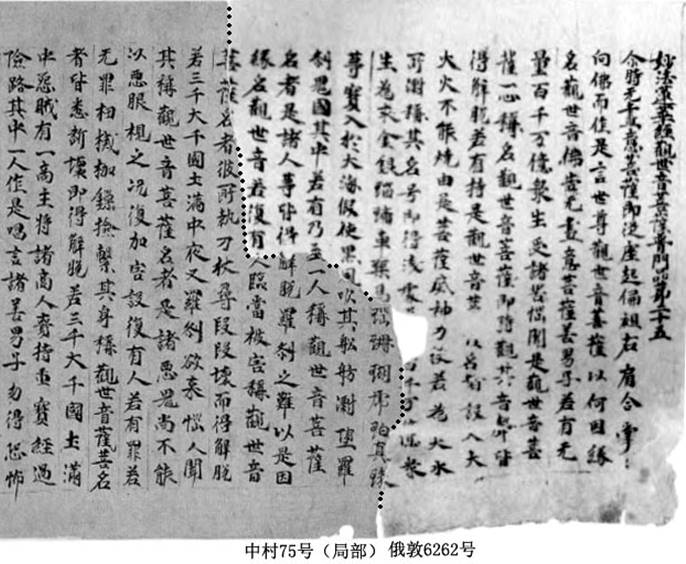 妙法蓮華經觀世音菩薩普門品第二十五
尒時无盡意菩薩即從座起偏袒右肩合掌
向佛而作是言世尊觀世音菩薩以何因緣
名觀世音佛告无盡意菩薩善男子若有无
量百千万億衆生受諸苦惱聞是觀世音菩
薩一心稱名觀世音菩薩即時觀其音聲皆
得解脱若有持是觀世音菩 名 設入大
火火不能燒由是菩薩威神力故若為大水
所漂稱其名号即得淺處 百千万億衆
生為求金銀琉璃車璩馬瑙珊瑚虎珀真珠
等寶入於大海假使黑風吹其舩舫漂墮羅
刹鬼國其中若有乃至一人稱觀世音菩薩
名者是諸人等皆得解脱羅刹之難以是因
緣名觀世音若復有人臨當被害稱觀世音
菩薩名者彼所執刀杖尋段段壞而得解脱
若三千大千國土滿中夜叉羅刹欲來惱人聞
其稱觀世音菩薩名者是諸惡鬼尚不能
以惡眼視之况復加害設復有人若有罪若
无罪杻械枷鎖撿繫其身稱觀世音薩菩名
者皆悉斷壞即得解脱若三千大千國土滿
中惡賊有一商主將諸商人賫持重寶經過
險路其中一人作是唱言諸善男子勿得恐怖
中村75号（局部） 俄敦6262号